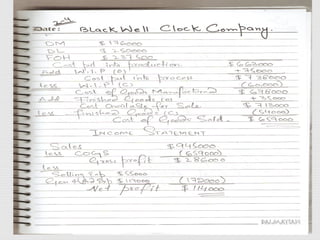 Date: BlackWell Clock Company.
DM
DL $ 250000
FOH $ 237500
Cost put into production $ 663000
Add W.I.P (O) + 75000
Cost put into process $ 738000
less W.I.P (C) (60000)
Cost of Goods Manufactured $ 678000
Add Finished Goods (O) + 35000
Cost available for Sale $ 713000
less Finished Goods (C) (54000)
Cost of Goods Sold $ 659000
INCOME STATEMENT
Sales $ 945000
less COGS (659000)
Gross profit $ 286000
less
Selling Exp $ 55000
Gen Exp $ 117000 (172000)
Net profit $ 114000